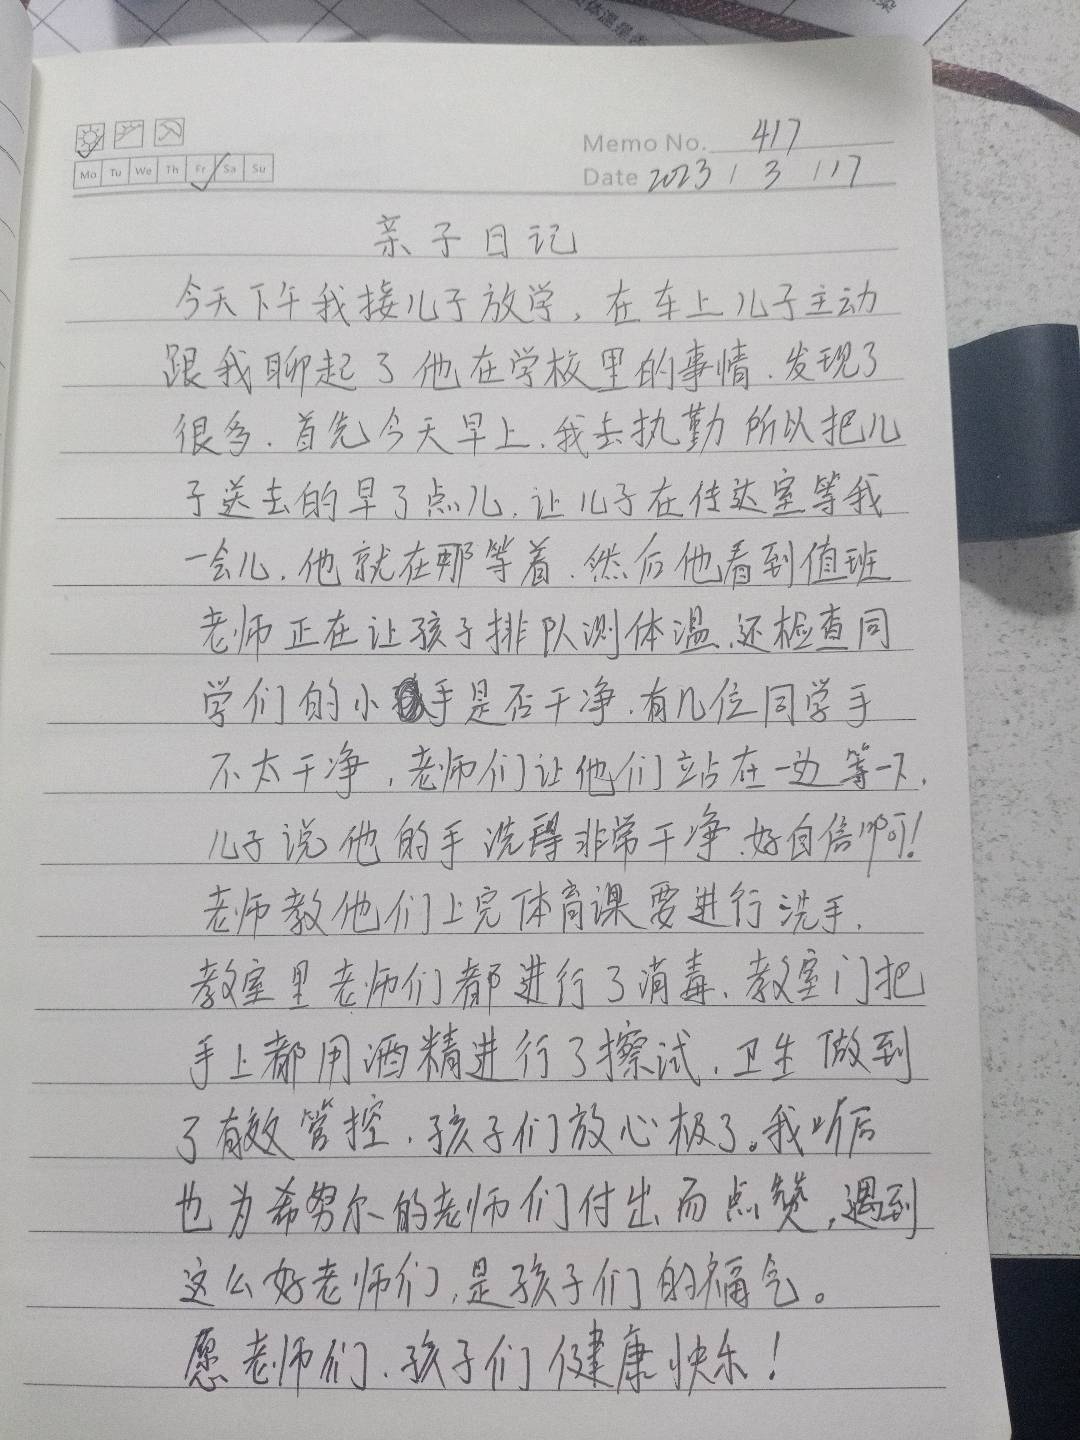 Memo No. 417
Mo Tu We Th Fr Sa Su
Date 2023 / 3 / 17
亲子日记
今天下午我接儿子放学，在车上儿子主动
跟我聊起了他在学校里的事情、发现了
很多、首先今天早上、我去执勤所以把儿
子送去的早了点儿、让儿子在传达室等我
一会儿、他就在那等着、然后他看到值班
老师正在让孩子排队测体温、还检查同
学们的小手是否干净、有几位同学手
不太干净，老师们让他们站在一边等一下、
儿子说他的手洗得非常干净、好自信啊！
老师教他们上完体育课要进行洗手、
教室里老师们都进行了消毒、教室门把
手上都用酒精进行了擦试、卫生做到
了有效管控、孩子们放心极了。我听后
也为希努尔的老师们付出而点赞，遇到
这么好老师们，是孩子们的福气。
愿老师们、孩子们健康快乐！